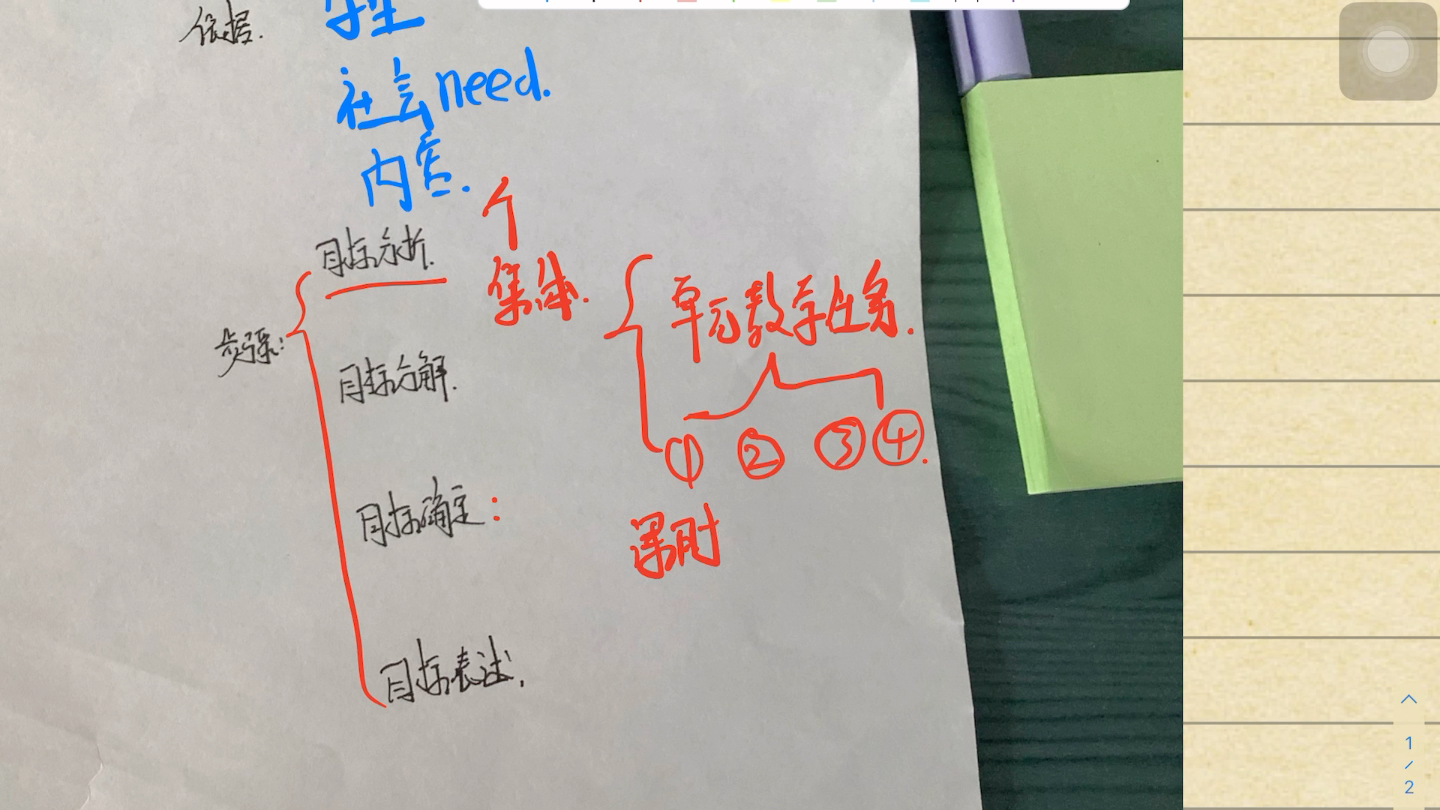 依据.
学生
社会need.
内容.
个
目标分析.
集体.
单元教学任务.
步骤:
目标分解.
① ② ③ ④.
目标确定:
课时
目标表述.
1
/
2